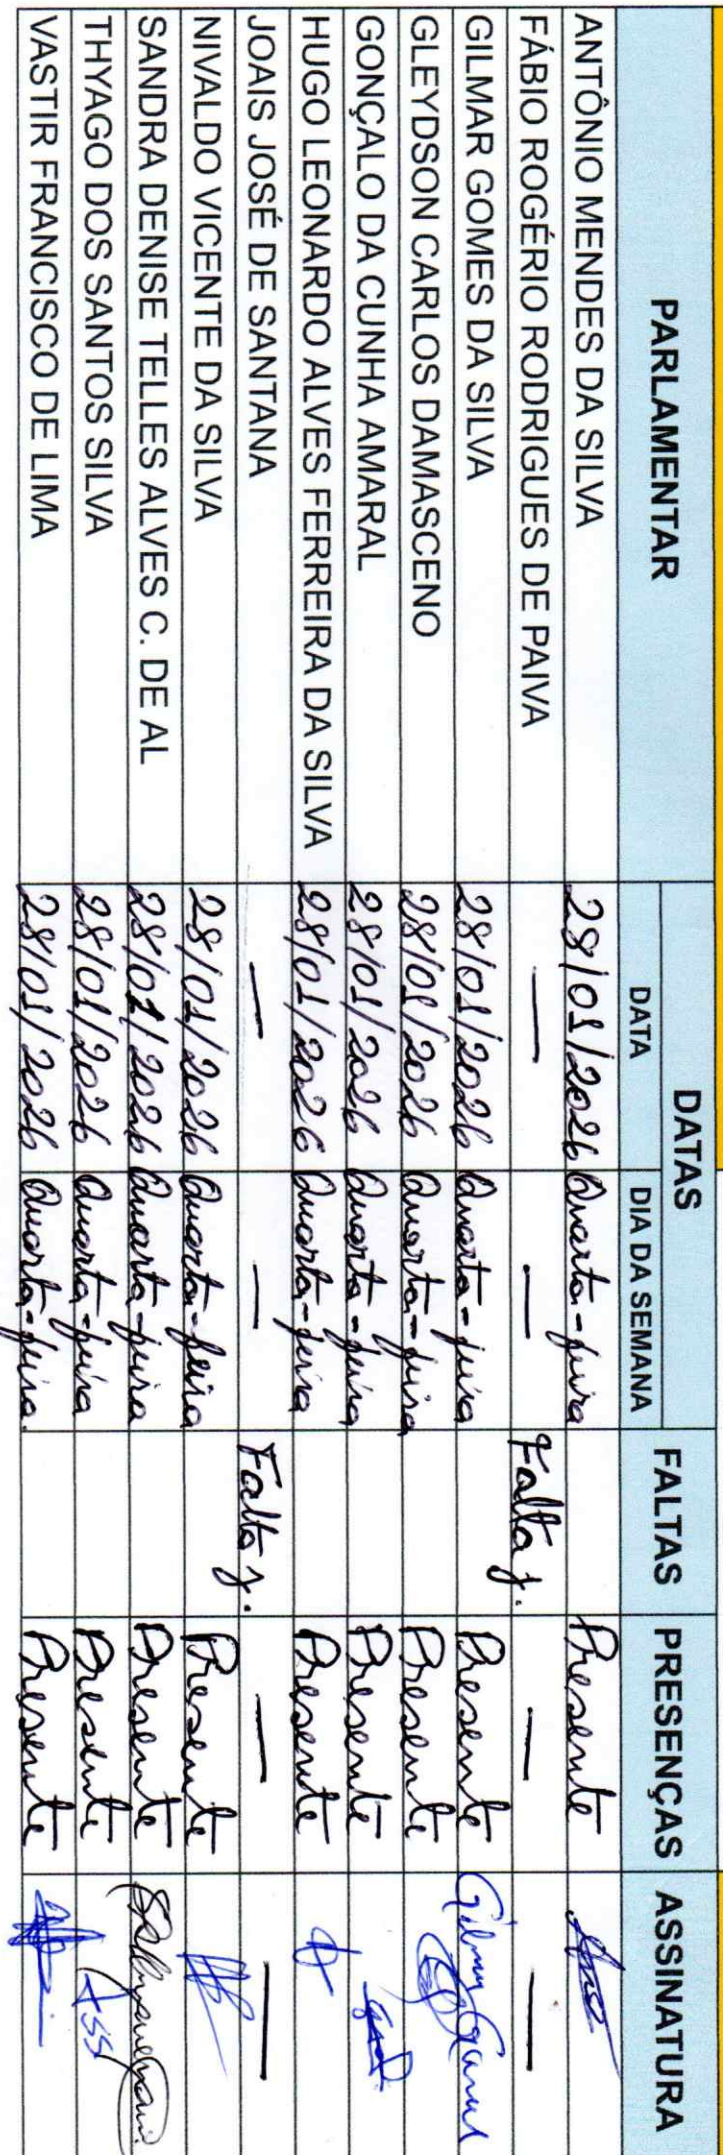 PARLAMENTAR DATAS FALTAS PRESENÇAS ASSINATURA
DATA DIA DA SEMANA
ANTÔNIO MENDES DA SILVA 28/01/2026 Quarta-feira Presente
FÁBIO ROGÉRIO RODRIGUES DE PAIVA — — Falta j. — —
GILMAR GOMES DA SILVA 28/01/2026 Quarta-feira Presente Gilmar
GLEYDSON CARLOS DAMASCENO 28/01/2026 Quarta-feira Presente
GONÇALO DA CUNHA AMARAL 28/01/2026 Quarta-feira Presente
HUGO LEONARDO ALVES FERREIRA DA SILVA 28/01/2026 Quarta-feira Presente
JOAIS JOSÉ DE SANTANA — — Falta j. — —
NIVALDO VICENTE DA SILVA 28/01/2026 Quarta-feira Presente
SANDRA DENISE TELLES ALVES C. DE AL 28/01/2026 Quarta-feira Presente
THYAGO DOS SANTOS SILVA 28/01/2026 Quarta-feira Presente
VASTIR FRANCISCO DE LIMA 28/01/2026 Quarta-feira. Presente